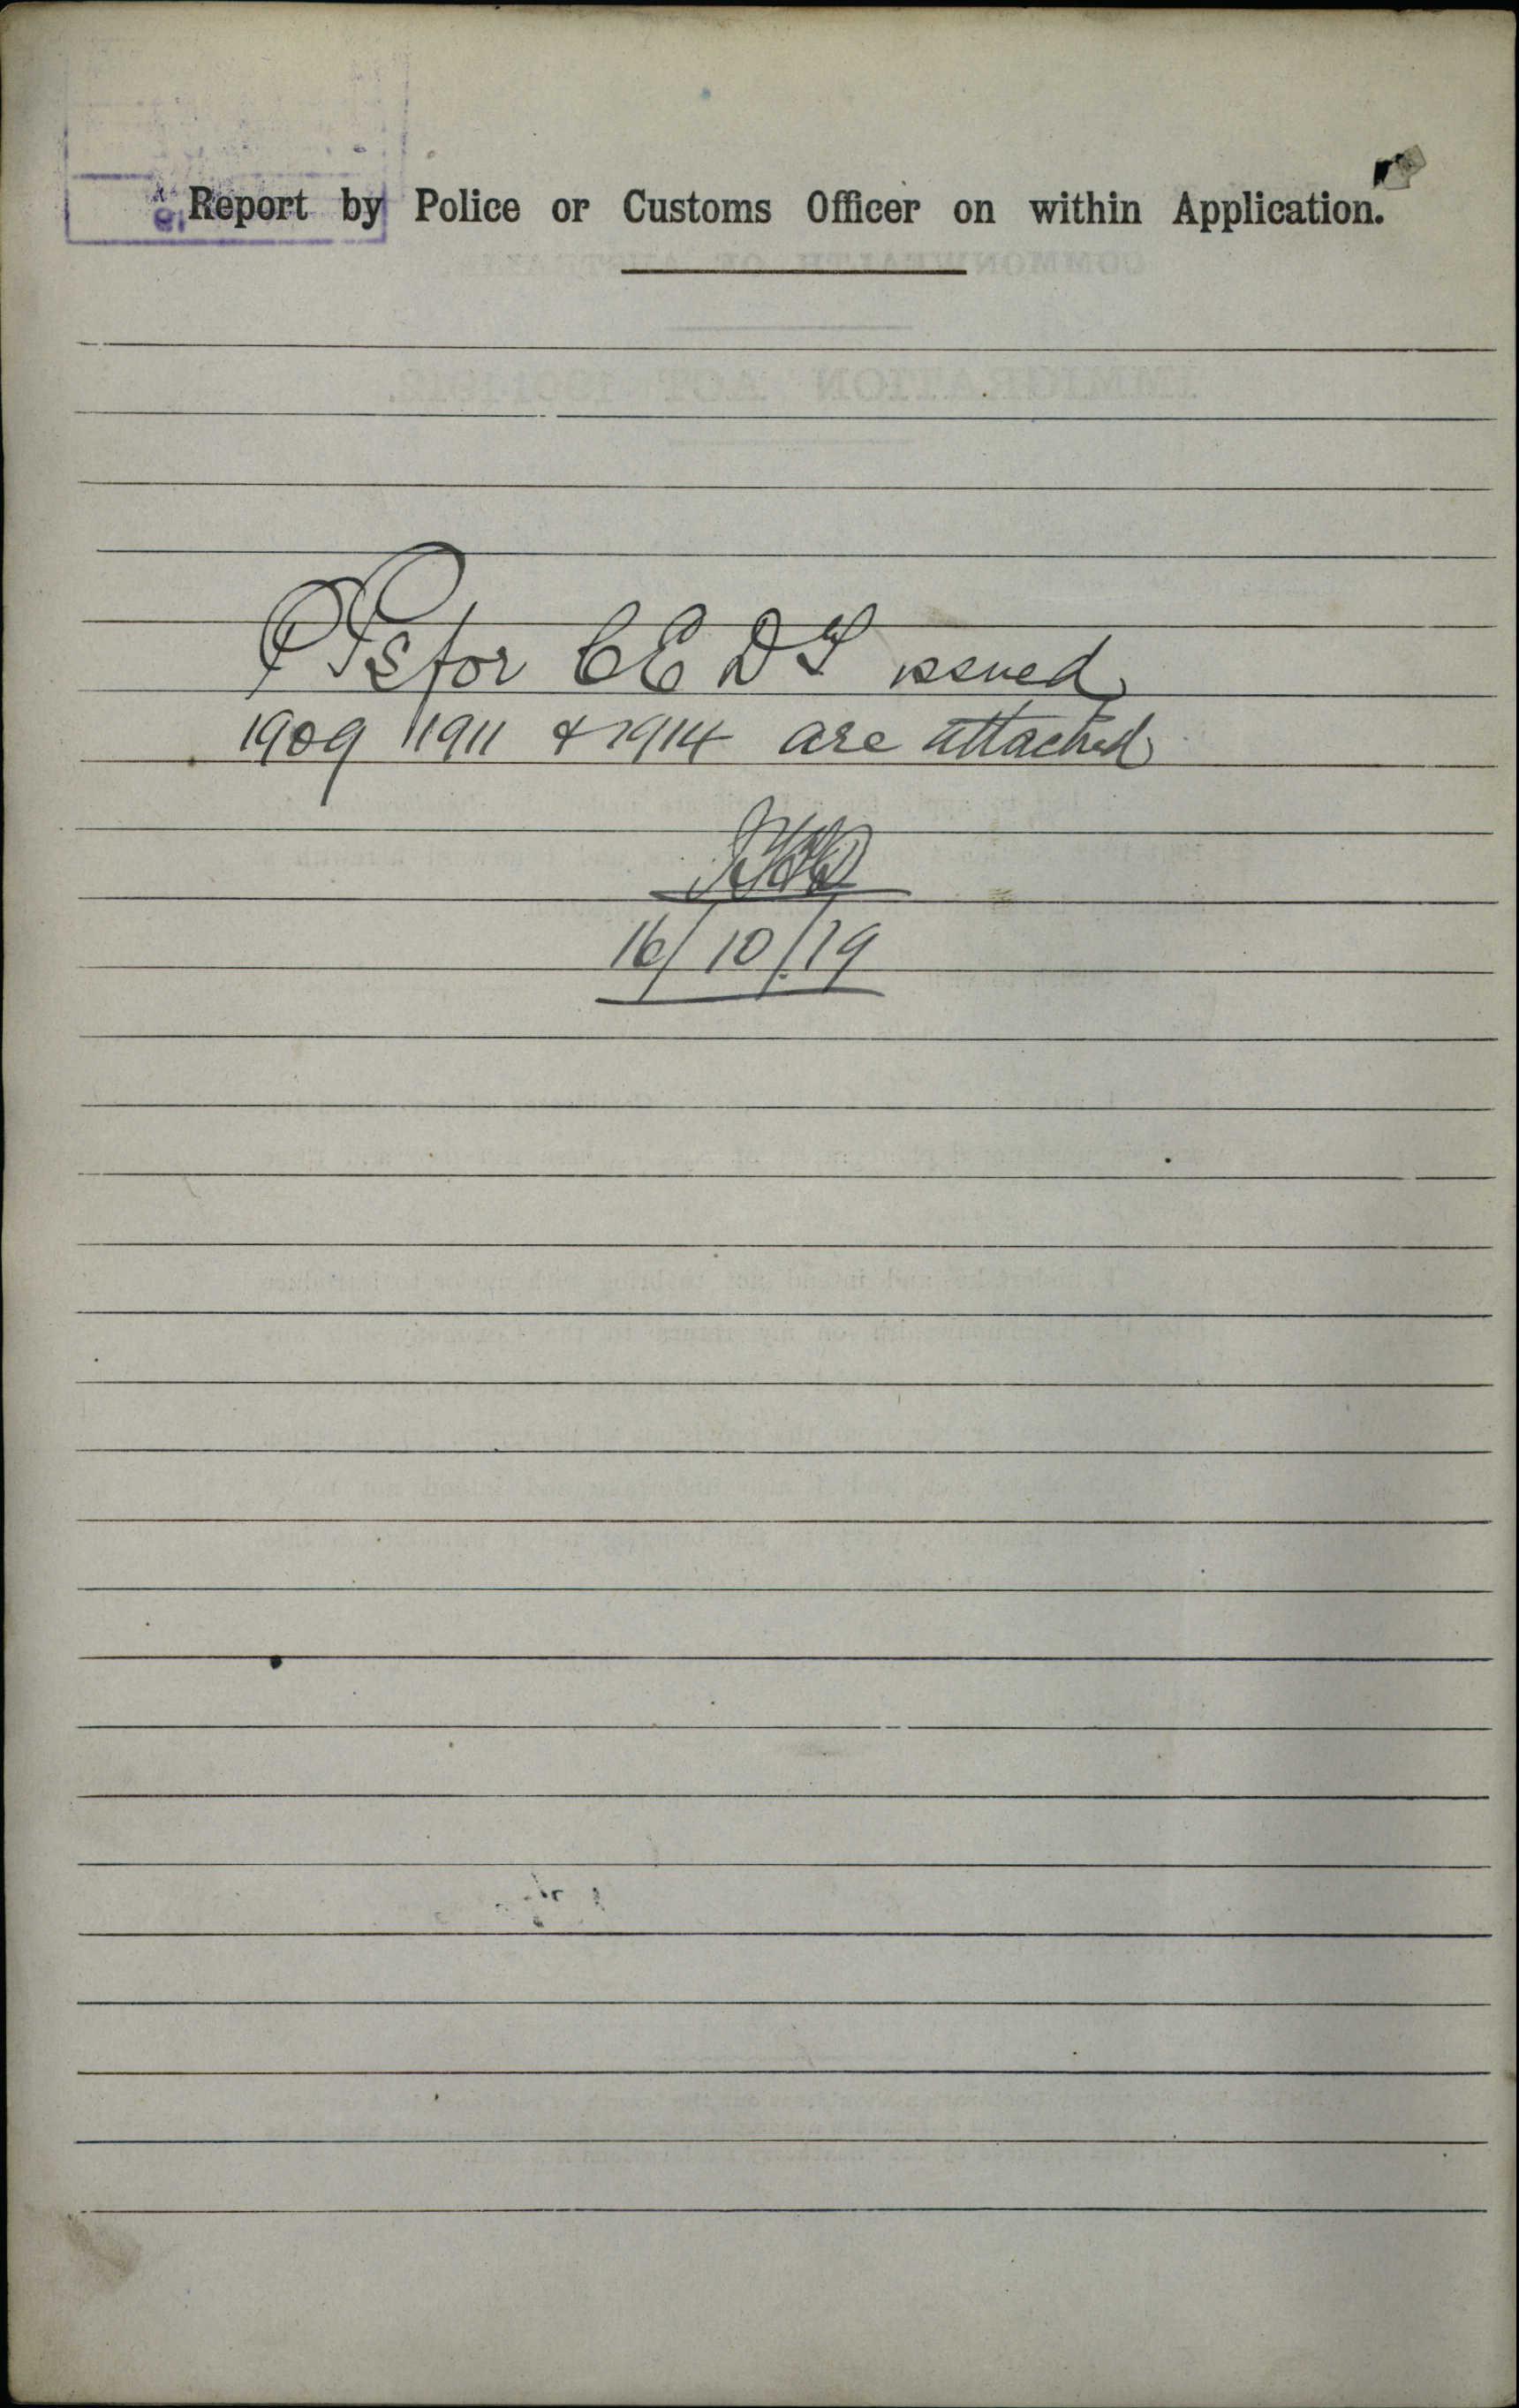 Report by Police or Customs Officer on within Application.
for CEDT issued
1909 1911 & 1914 are attached
16/10/19